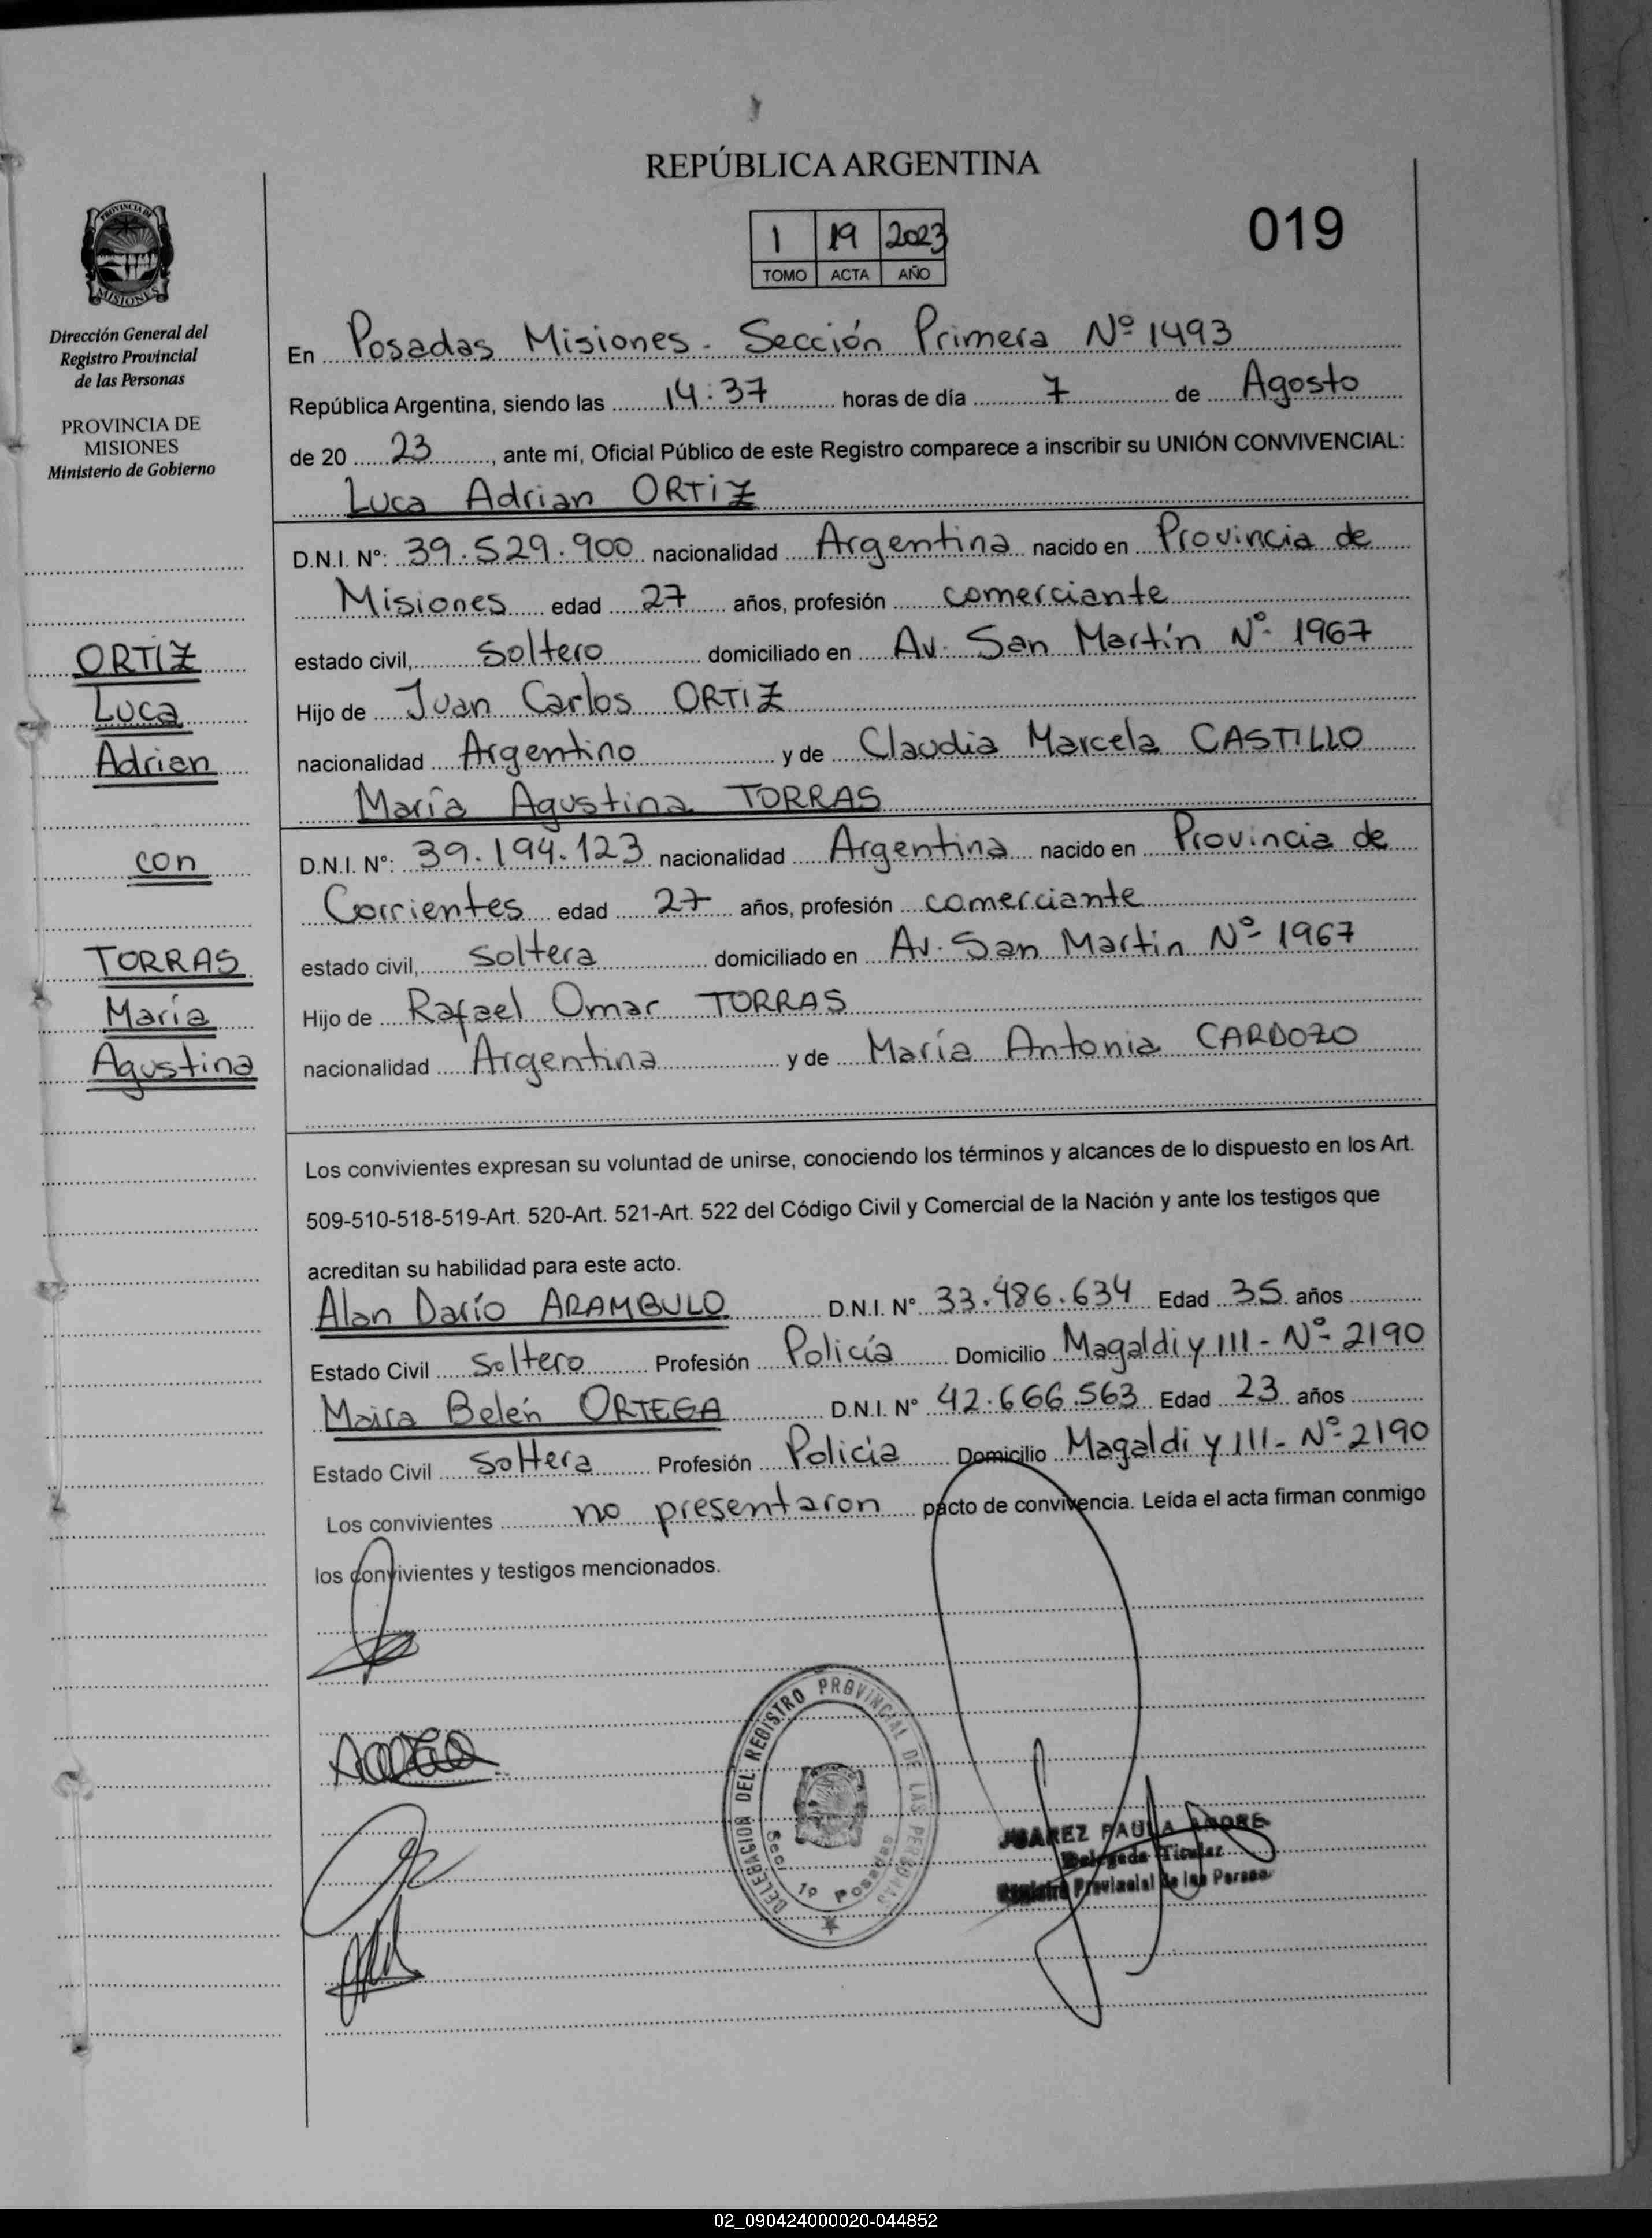 REPÚBLICA ARGENTINA
019
1 19 2023
TOMO ACTA AÑO
PROVINCIA DE
MISIONES
Dirección General del
Registro Provincial
de las Personas
PROVINCIA DE
MISIONES
Ministerio de Gobierno
ORTIZ
Luca
Adrian
con
TORRAS
María
Agustina
En Posadas Misiones - Sección Primera Nº 1493
República Argentina, siendo las 14:37 horas de día 7 de Agosto
de 20 23, ante mí, Oficial Público de este Registro comparece a inscribir su UNIÓN CONVIVENCIAL:
Luca Adrian ORTIZ
D.N.I. Nº: 39.529.900 nacionalidad Argentina nacido en Provincia de
Misiones edad 27 años, profesión comerciante
estado civil, soltero domiciliado en Av. San Martín Nº 1967
Hijo de Juan Carlos ORTIZ
nacionalidad Argentino y de Claudia Marcela CASTILLO
María Agustina TORRAS
D.N.I. Nº: 39.194.123 nacionalidad Argentina nacido en Provincia de
Corrientes edad 27 años, profesión comerciante
estado civil, soltera domiciliado en Av. San Martin Nº 1967
Hijo de Rafael Omar TORRAS
nacionalidad Argentina y de María Antonia CARDOZO
Los convivientes expresan su voluntad de unirse, conociendo los términos y alcances de lo dispuesto en los Art.
509-510-518-519-Art. 520-Art. 521-Art. 522 del Código Civil y Comercial de la Nación y ante los testigos que
acreditan su habilidad para este acto.
Alan Darío ARAMBULO D.N.I. Nº 33.486.634 Edad 35 años
Estado Civil Soltero Profesión Policía Domicilio Magaldi y III - Nº 2190
Maira Belén ORTEGA D.N.I. Nº 42.666.563 Edad 23 años
Estado Civil Soltera Profesión Policía Domicilio Magaldi y III - Nº 2190
Los convivientes no presentaron pacto de convivencia. Leída el acta firman conmigo
los convivientes y testigos mencionados.
DELEGACION DEL REGISTRO PROVINCIAL DE LAS PERSONAS
Sec. 1º Posadas
JUAREZ PAULA ANDRE
Delegada Titular
Registro Provincial de las Person
02_090424000020-044852